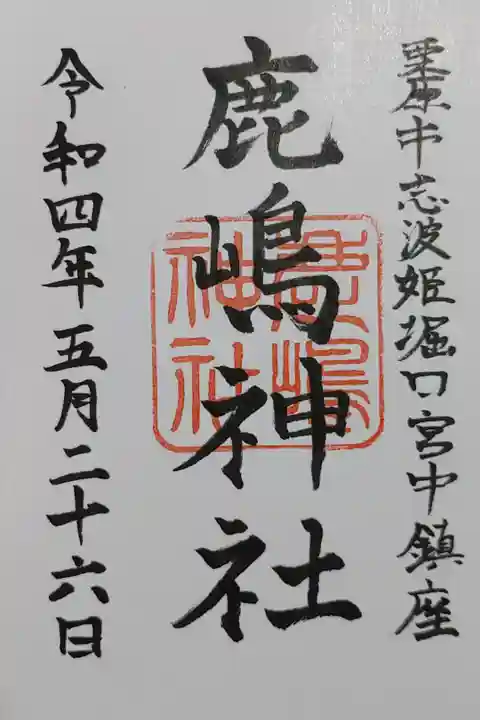 栗原市志波姫堀口宮中鎮座
鹿嶋神社
令和四年五月二十六日
鹿嶋
神社